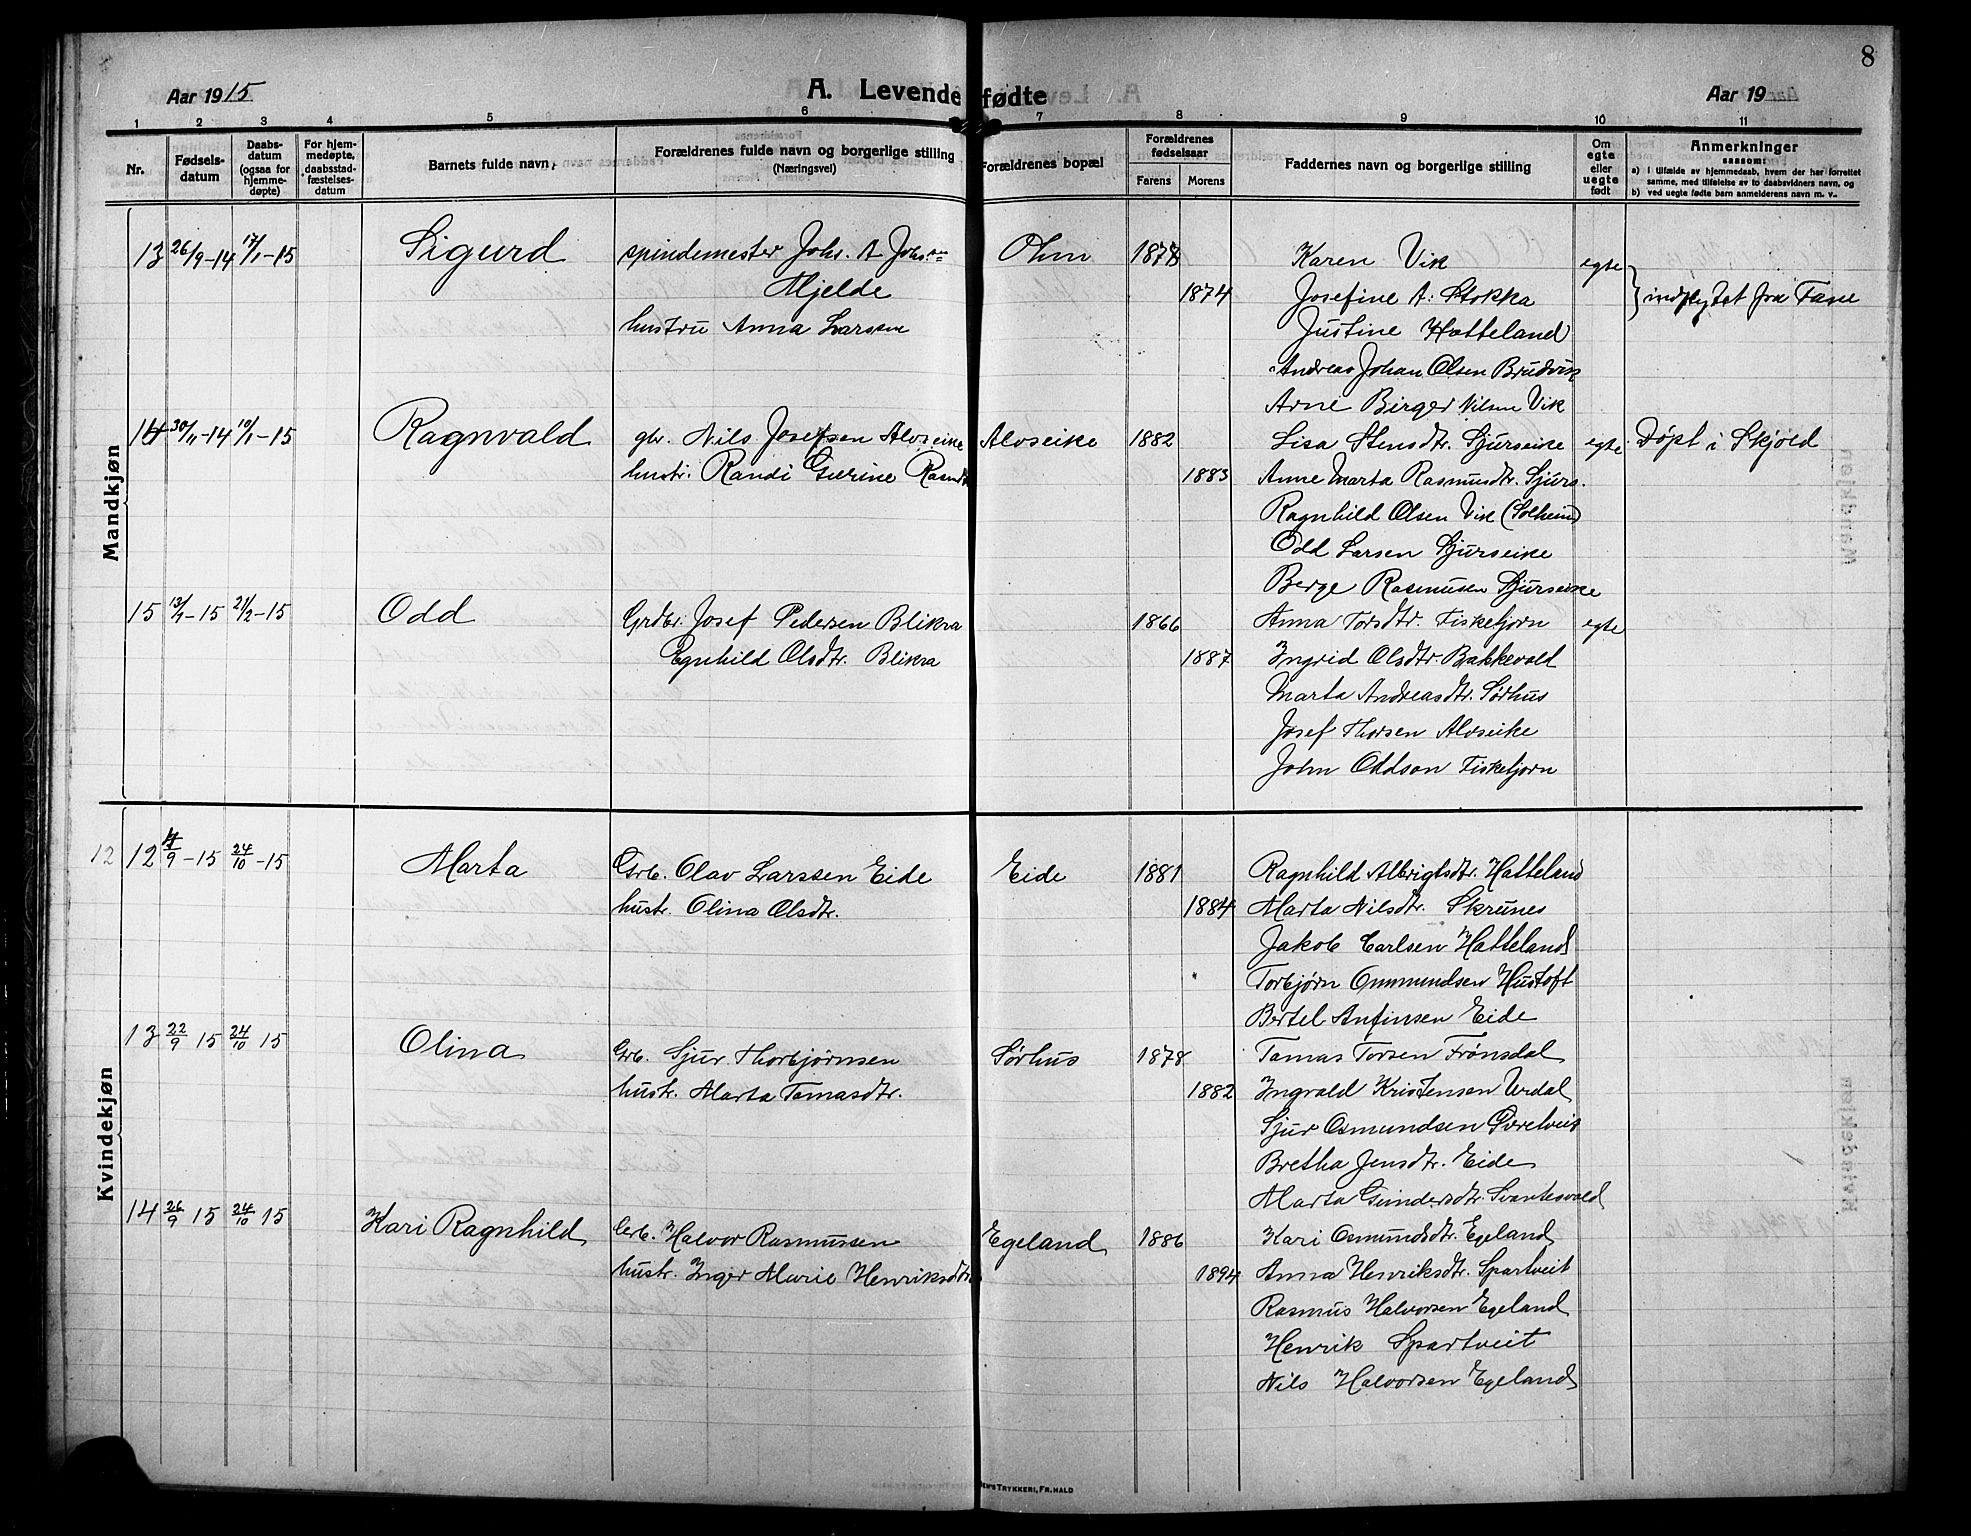 8
Aar 1915
A. Levendefødte
Aar 19
1 2 3 4 5 6 7 8 9 10 11
Nr.
Fødselsdatum
Daabsdatum (ogsaa for hjemmedøpte)
For hjemmedøpte, daabsstadfæstelsesdatum
Barnets fulde navn
Forældrenes fulde navn og borgerlige stilling
(Næringsvei)
Forældrenes bopæl
Forældrenes fødselsaar
Farens Morens
Faddernes navn og borgerlige stilling
Om egte eller uegte født
Anmerkninger
saasom:
a) i tilfælde av hjemmedaab, hvem der har forrettet samme, med tilføielse av to daabsvidners navn, og
b) ved uegte fødte barn anmelderens navn m. v.
Mandkjøn
13 26/9-14 17/1-15 Sigurd spindemester Johs. A Johs.en Ohm 1878 Karen Vik egte
Mjelde 1874 Josefine A. Stokka indflytet fra Fane
hustru Anna Larsen Justine Hatteland
Andreas Johan Olsen Brudvik
Arne Birger Nilsen Vik
14 30/11-14 10/1-15 Ragnvald gb. Nils Josefsen Alvseike Alvseike 1882 Lisa Stensdtr. Sjurseike egte Døpt i Skjold
hustr. Randi Gurine Rasmdtr 1883 Anne Marta Rasmusdtr. Sjurs.
Ragnhild Olsen Vik (Solheim)
Odd Larsen Sjurseike
Berge Rasmusen Sjurseike
15 13/1-15 21/2-15 Odd Grdbr. Josef Pedersen Blikra 1866 Anna Torsdtr. Fisketjørn egte
Ragnhild Olsdtr. Blikra 1887 Ingrid Olsdtr. Bakkevold
Marta Andreasdtr. Sørhus
Josef Thorsen Alvseike
John Oddson Fisketjørn
Kvindekjøn
12 12 /9-15 24/10-15 Marta Grb. Olav Larssen Eide Eide 1881 Ragnhild Albrigtsdtr. Hatteland
hustr. Olina Olsdtr. 1884 Marta Nilsdtr. Skrunes
Jakob Carlsen Hatteland
Torbjørn Ommundsen Hustoft
Bertel Anfinsen Eide
13 22/9 15 24/10 15 Olina Grb. Sjur Thorbjørnsen Sørhus 1878 Tomas Torsen Frønsdal
hustr. Marta Tomasdtr. 1882 Ingvald Kristensen Urdal
Sjur Osmundsen
Bretha Jensdtr. Eide
Marta Gundersdtr. Svartevold
14 26/9 15 24/10 15 Kari Ragnhild Grb. Halvor Rasmussen Egeland 1886 Kari Osmundsdtr. Egeland
hustr. Inger Marie Henriksdtr 1894 Anna Henriksdtr. Spartveit
Rasmus Halvorsen Egeland
Henrik Spartveit
Nils Halvorsen Egeland
TRYKKERI, FR. HALD